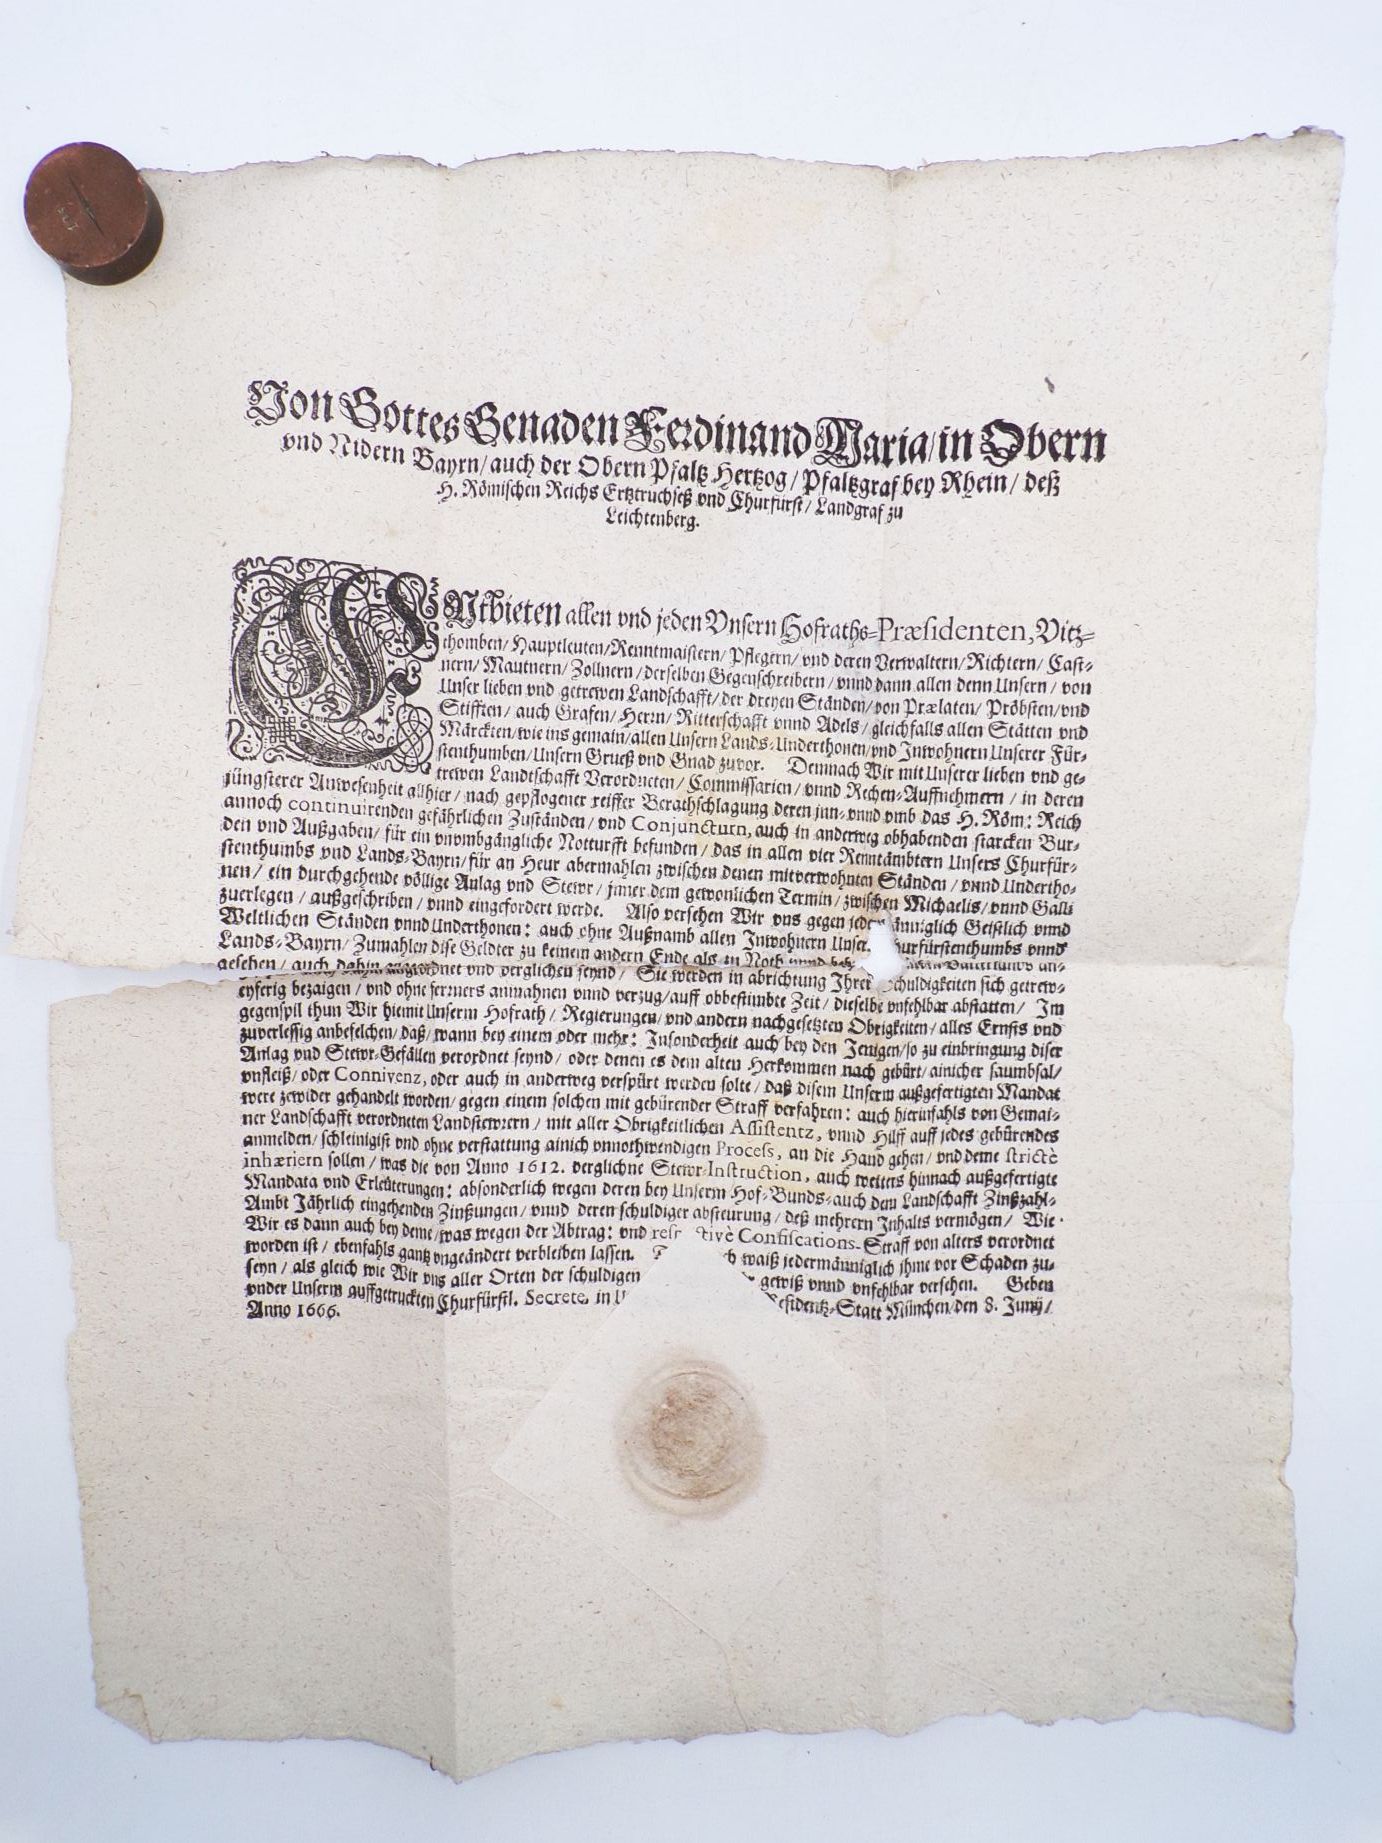 Von Gottes Genaden Ferdinand Maria/ in Obern
vnd Nidern Bayrn/ auch der Obern Pfaltz Hertzog/ Pfaltzgraf bey Rhein/ deß
H. Römischen Reichs Ertztruchseß vnd Churfürst/ Landgraf zu
Leichtenberg.
ENtbieten allen vnd jeden Vnsern Hofraths-Præsidenten, Vitz-
thomben/ Hauptleuten/ Renntmaistern/ Pflegern/ vnd deren Verwaltern/ Richtern/ Cast-
nern/ Mautnern/ Zollnern/ derselben Gegenschreibern/ vnnd dann allen denn Unsern/ von
Unser lieben vnd getrewen Landschafft/ der dreyen Ständen/ von Prælaten/ Pröbsten/ vnd
Stifften/ auch Grafen/ Herrn/ Ritterschafft vnnd Adels/ gleichfalls allen Stätten vnd
Märckten/ wie ins gemain/ allen Unsern Lands-Underthonen/ vnd Inwohnern Unserer Für-
stenthumben/ Unsern Grueß vnd Gnad zuvor. Demnach Wir mit Unserer lieben vnd ge-
trewen Landtschafft Verordneten/ Commissarien/ vnnd Rechen-Auffnehmern/ in deren
jüngsterer Anwesenheit allhier/ nach gepflogener reiffer Berathschlagung deren inn- vnnd vmb das H. Röm: Reich
annoch continuirenden gefährlichen Zuständen/ vnd Conjuncturn, auch in anderweg obhabenden starcken Bur-
den vnd Außgaben/ für ein vnvmbgängliche Notturfft befunden/ das in allen vier Renntämbtern Unsers Churfür-
stenthumbs vnd Lands-Bayrn/ für an Heur abermahlen zwischen denen mitverwohnten Ständen/ vnnd Undertho-
nen/ ein durchgehende völlige Anlag vnd Stewr/ inner dem gewonlichen Termin/ zwischen Michaelis/ vnnd Galli
zuerlegen/ außgeschriben/ vnnd eingefordert werde. Also versehen Wir vns gegen jeder änniglich Geistlich vnnd
Weltlichen Ständen vnnd Underthonen: auch ohne Außnamb allen Inwohnern Unser hurfürstenthumbs vnnd
Lands-Bayrn/ Zumahlen dise Geldter zu keinem andern Ende als in Noth vnnd Vatterlands an-
gesehen/ auch dahin angeordnet vnd verglichen seynd/ Sie werden in abrichtung Ihrer chuldigkeiten sich getrew-
eyferig bezaigen/ vnd ohne ferrners anmahnen vnnd verzug/ auff obbestimbte Zeit/ dieselbe vnfehlbar abstatten/ Im
gegenspil thun Wir hiemit Unserm Hofrath/ Regierungen/ vnd andern nachgesetzten Obrigkeiten/ alles Ernsts vnd
zuverlessig anbefelchen/ daß/ wann bey einem oder mehr: Insonderheit auch bey den Jenigen/ so zu einbringung diser
Anlag vnd Stewr-Gefällen verordnet seynd/ oder denen es dem alten Herkommen nach gebürt/ ainicher saumbsal/
vnfleiß/ oder Connivenz, oder auch in anderweg verspürt werden solte/ daß disem Unserm außgefertigten Mandat
were zewider gehandelt worden/ gegen einem solchen mit gebürender Straff verfahren: auch hierinfahls von Gemai-
ner Landschafft verordneten Landstewrern/ mit aller Obrigkeitlichen Assistentz, vnnd Hilff auff jedes gebürendes
anmelden/ schleinigist vnd ohne verstattung ainich vnnothwendigen Process, an die Hand gehen/ vnd deme strictè
inhæriern sollen/ was die von Anno 1612. verglichne Stewr-Instruction, auch weiters hinnach außgefertigte
Mandata vnd Erleüterungen: absonderlich wegen deren bey Unserm Hof-Bunds-auch dem Landschafft Zinßzahl-
Ambt Jährlich eingehenden Zinßungen/ vnnd deren schuldiger absteurung/ deß mehrern Inhalts vermögen/ Wie
Wir es dann auch bey deme/ was wegen der Abtrag: vnd resp tivè Confiscations-Straff von alters verordnet
worden ist/ ebenfahls gantz vngeändert verbleiben lassen. waiß jedermänniglich ihme vor Schaden zu-
seyn/ als gleich wie Wir vns aller Orten der schuldigen gewiß vnnd vnfehlbar versehen. Geben
vnder Unserm auffgetruckten Churfürstl. Secrete, in U esidentz-Statt München/ den 8. Junij/
Anno 1666.